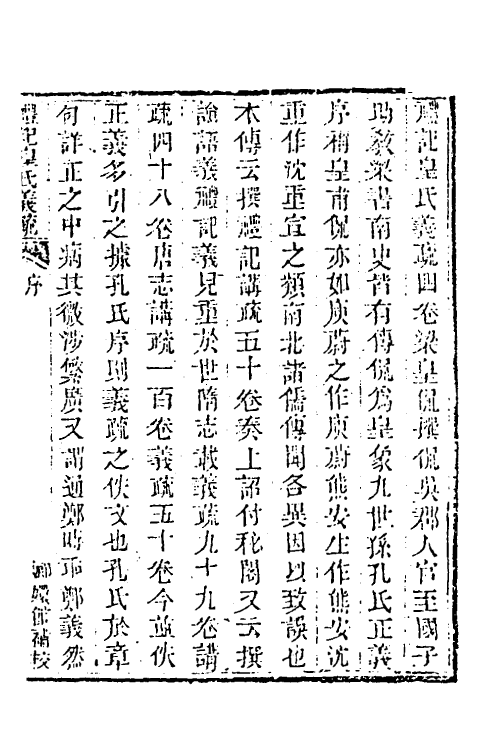 禮記皇氏義疏四卷梁皇侃撰侃吳郡人官至國子
助敎梁書南史皆有傳侃爲皇象九世孫孔氏正義
序稱皇甫侃亦如庾蔚之作庾蔚熊安生作熊安沈
重作沈重宣之類南北諸儒傳聞各異因以致誤也
本傳云撰禮記講疏五十卷奏上詔付秘閣又云撰
論語義禮記義見重於世隋志載義疏九十九卷講
疏四十八卷唐志講疏一百卷義疏五十卷今並佚
正義多引之據孔氏序則義疏之佚文也孔氏於章
句詳正之中病其微涉繁廣又謂遵鄭時乖鄭義然
禮記皇氏義疏 序
嫏嬛館補校